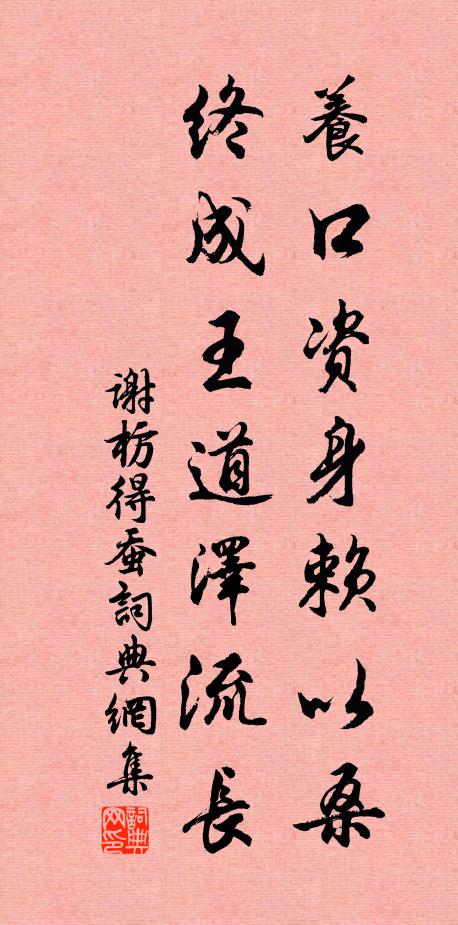 養口資身賴以桑
終成王道澤流長
謝枋得蚕詞典網集
詞典网印